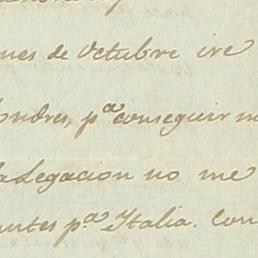 nes de Octubre ire
ondres, p.ª conseguir m
la Legacion no me
antes p.ª Italia. Con